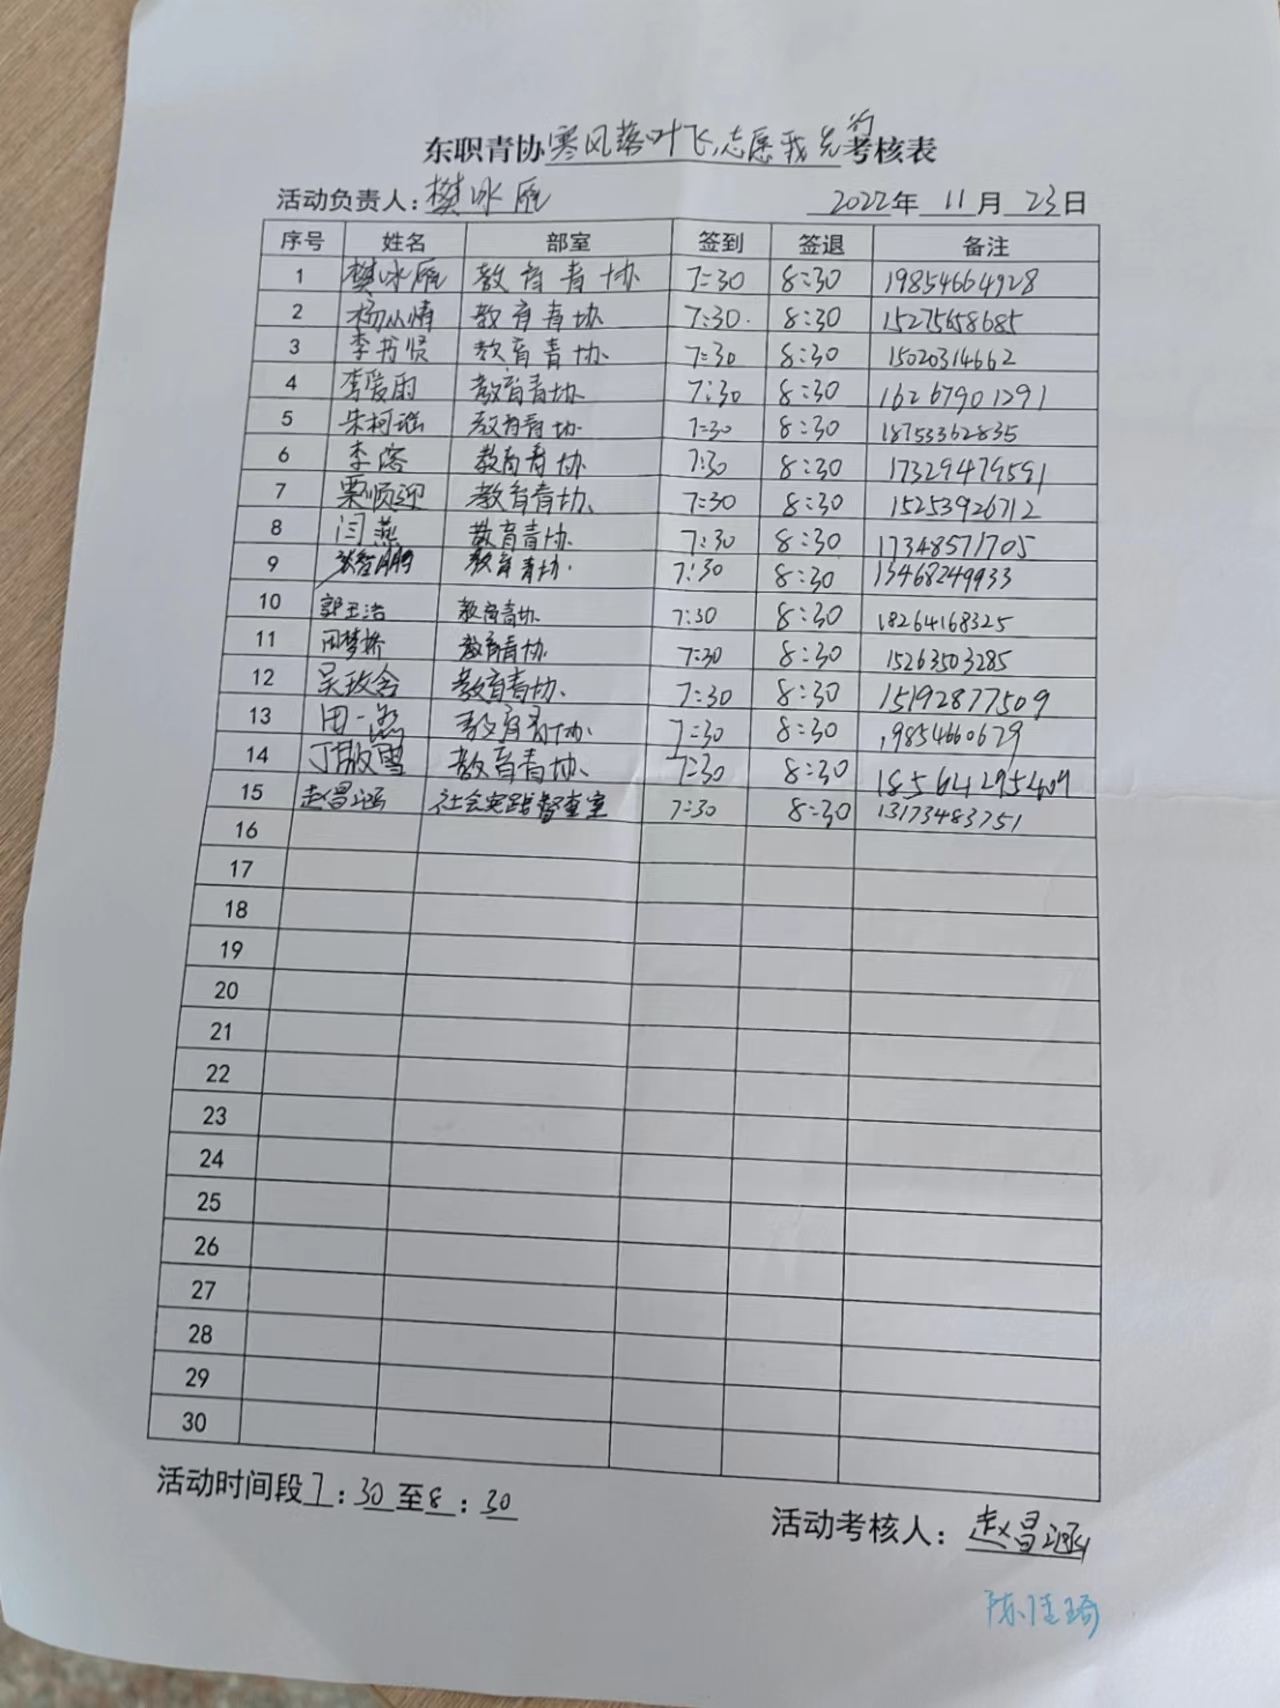 东职青协寒风落叶飞,志愿我先行考核表
活动负责人:樊冰雁 2022年11月23日
序号 姓名 部室 签到 签退 备注
1 樊冰雁 教育青协 7:30 8:30 19854664928
2 教育青协 7:30 8:30 15275658685
3 李书贤 教育青协 7:30 8:30 15020314662
4 李爱雨 教育青协 7:30 8:30 16267901291
5 朱柯瑶 教育青协 7:30 8:30 18753362835
6 李溶 教育青协 7:30 8:30 17329479591
7 栗顺迎 教育青协 7:30 8:30 15253926712
8 闫燕 教育青协 7:30 8:30 17348571705
9 教育青协 7:30 8:30 13468249933
10 郭玉浩 教育青协 7:30 8:30 18264168325
11 教育青协 7:30 8:30 15263503285
12 吴玫含 教育青协 7:30 8:30 15192877509
13 教育青协 7:30 8:30 19854660679
14 丁敬雪 教育青协 7:30 8:30 18564295409
15 赵昌涵 社会实践督查室 7:30 8:30 13173483751
16
17
18
19
20
21
22
23
24
25
26
27
28
29
30
活动时间段7:30至8:30
活动考核人:赵昌涵
陈佳琦